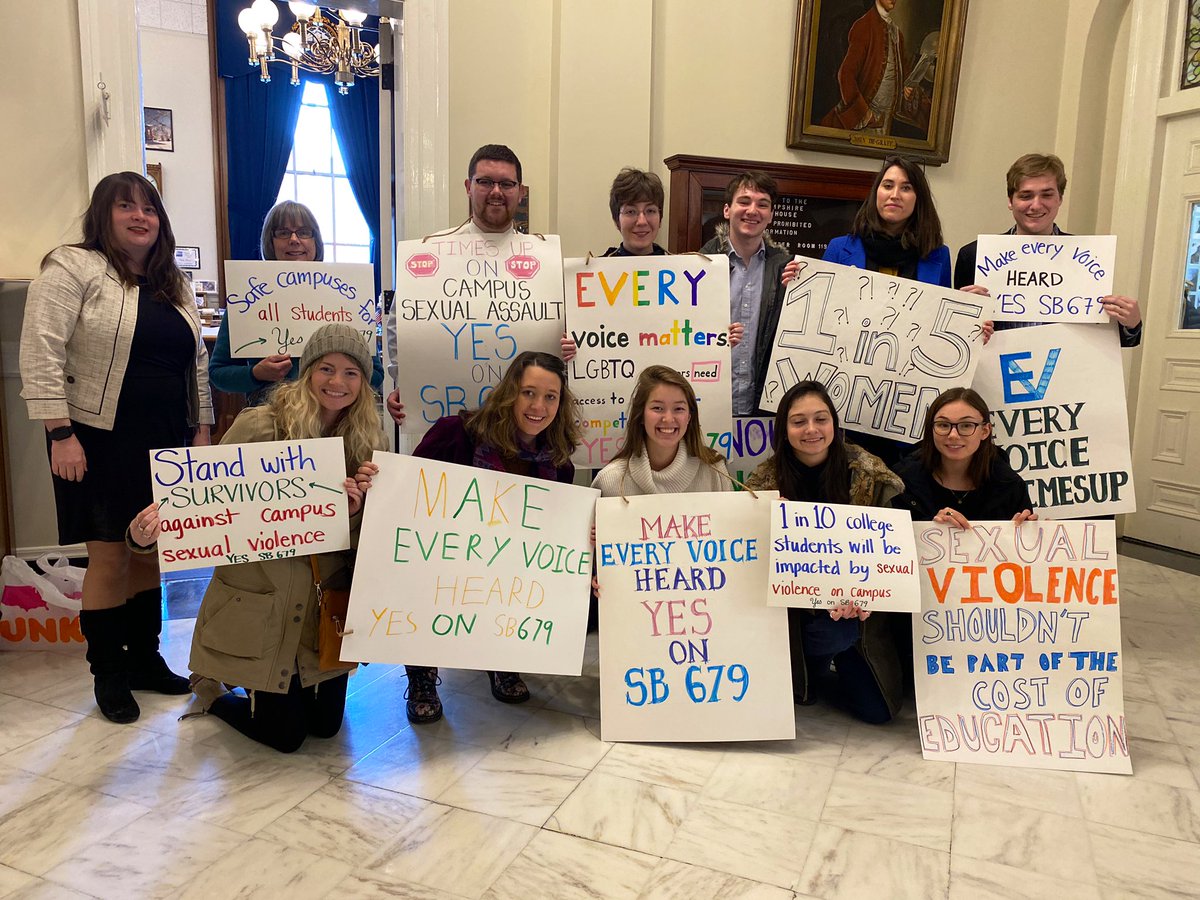 Safe campuses for
all students
Yes
679
TIMES UP
ON
STOP
STOP
CAMPUS
SEXUAL ASSAULT
YES
ON
SB
EVERY
voice matters
LGBTQ
need
access to
compet
YES
679
1 in 5
WOMEN
NOW
Make every voice
HEARD
YES SB679
EV
EVERY
VOICE
TIMESUP
Stand with
SURVIVORS
against campus
sexual violence
YES SB 679
MAKE
EVERY VOICE
HEARD
YES ON SB679
MAKE
EVERY VOICE
HEARD
YES
ON
SB 679
1 in 10 college
students will be
impacted by sexual
violence on campus
Yes on SB 679
SEXUAL
VIOLENCE
SHOULDN'T
BE PART OF THE
COST OF
EDUCATION
TO THE
MPSHIRE
HOUSE
PROHIBITED
RMATION
ROOM 119
UNK